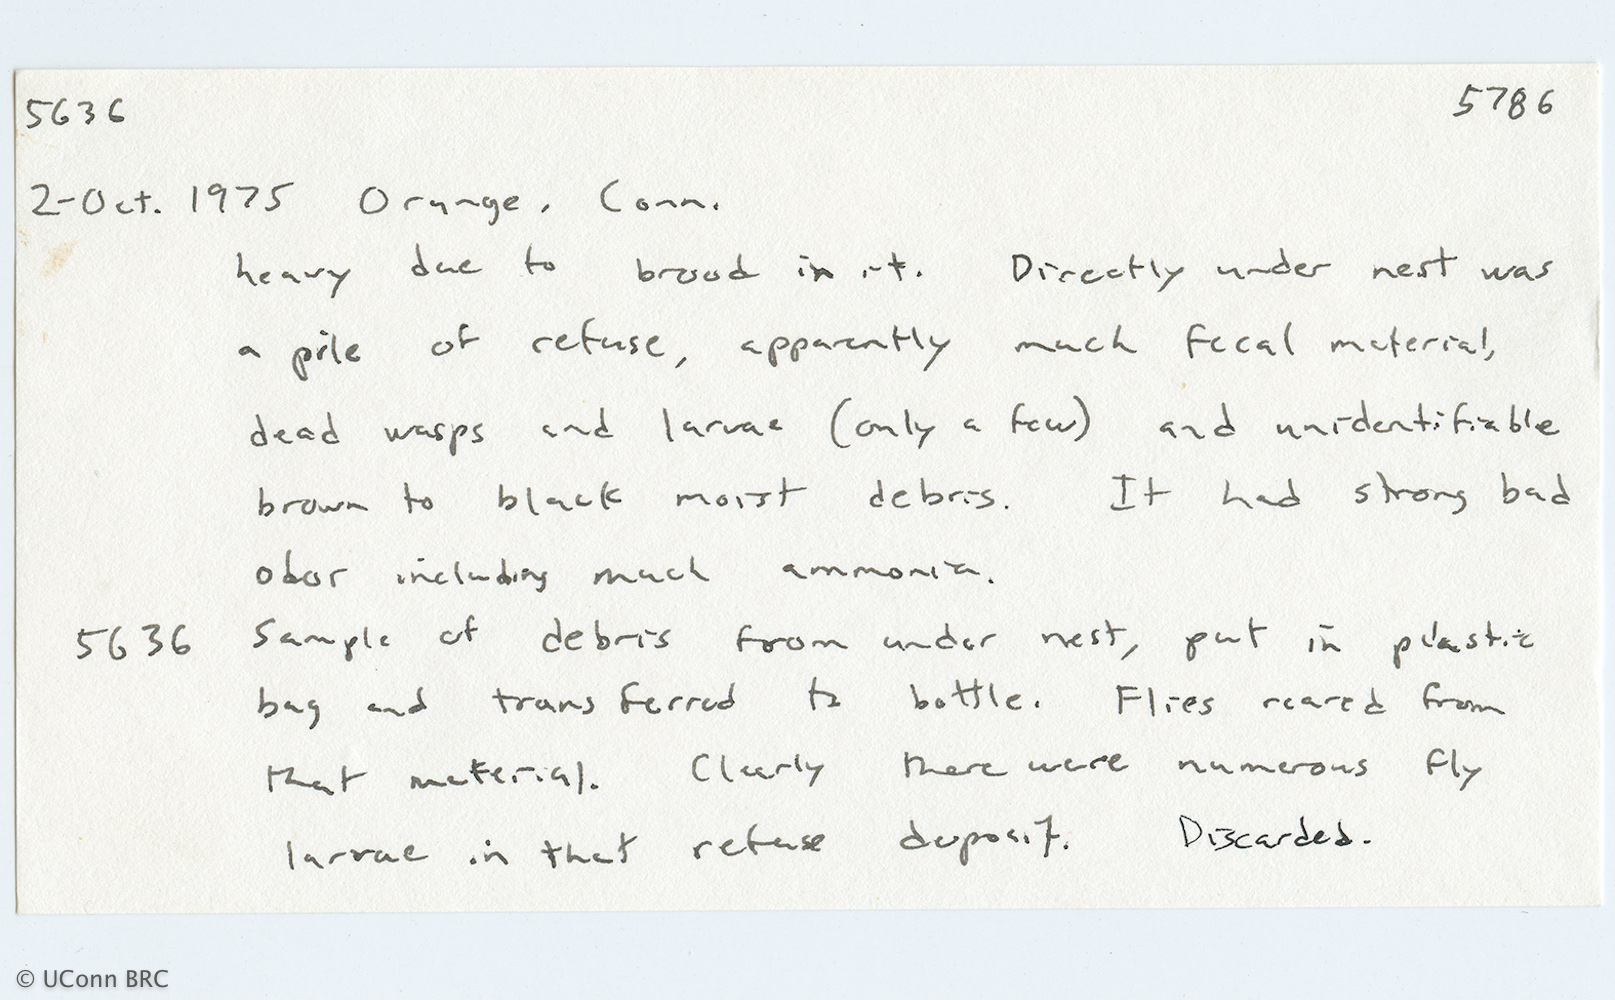 5636 5786
2-Oct. 1975 Orange, Conn.
heavy due to brood in it. Directly under nest was
a pile of refuse, apparently much fecal material,
dead wasps and larvae (only a few) and unidentifiable
brown to black moist debris. It had strong bad
odor including much ammonia.
5636 Sample of debris from under nest, put in plastic
bag and transferred to bottle. Flies reared from
that material. Clearly there were numerous fly
larvae in that refuse deposit. Discarded.
© UConn BRC